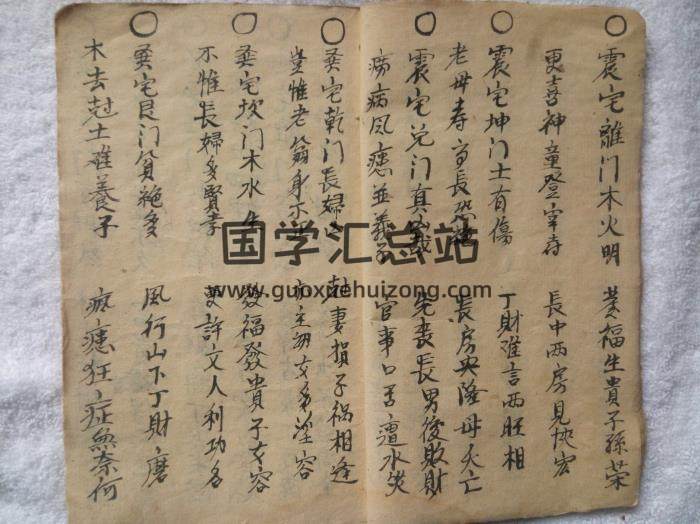 ○震宅離门木火明 發福生貴子孫荣
更喜神童登宰府 長中兩房見恢宏
○震宅坤门土有傷 丁財难言两旺相
老母寿高長恐 長房興隆母夭亡
○震宅兑门真 先喪長男後敗財
痨病风瘧並義子 官事口舌遭水災
○巽宅乾门長婦 尅妻損子祸相逢
豈惟老翁身不 亦主幼女多淫容
○巽宅坎门木水生 發福發貴子女容
不惟長婦多賢孝 更許文人利功名
○巽宅艮门貧絶多 風行山下丁財磨
木去尅土难養子 疯瘧狂症無奈何
国学汇总站
www.guoxuehuizong.com